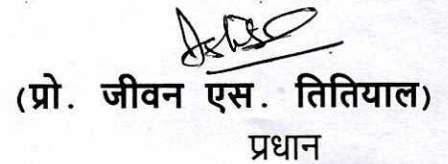 (प्रो. जीवन एस. तितियाल)
प्रधान